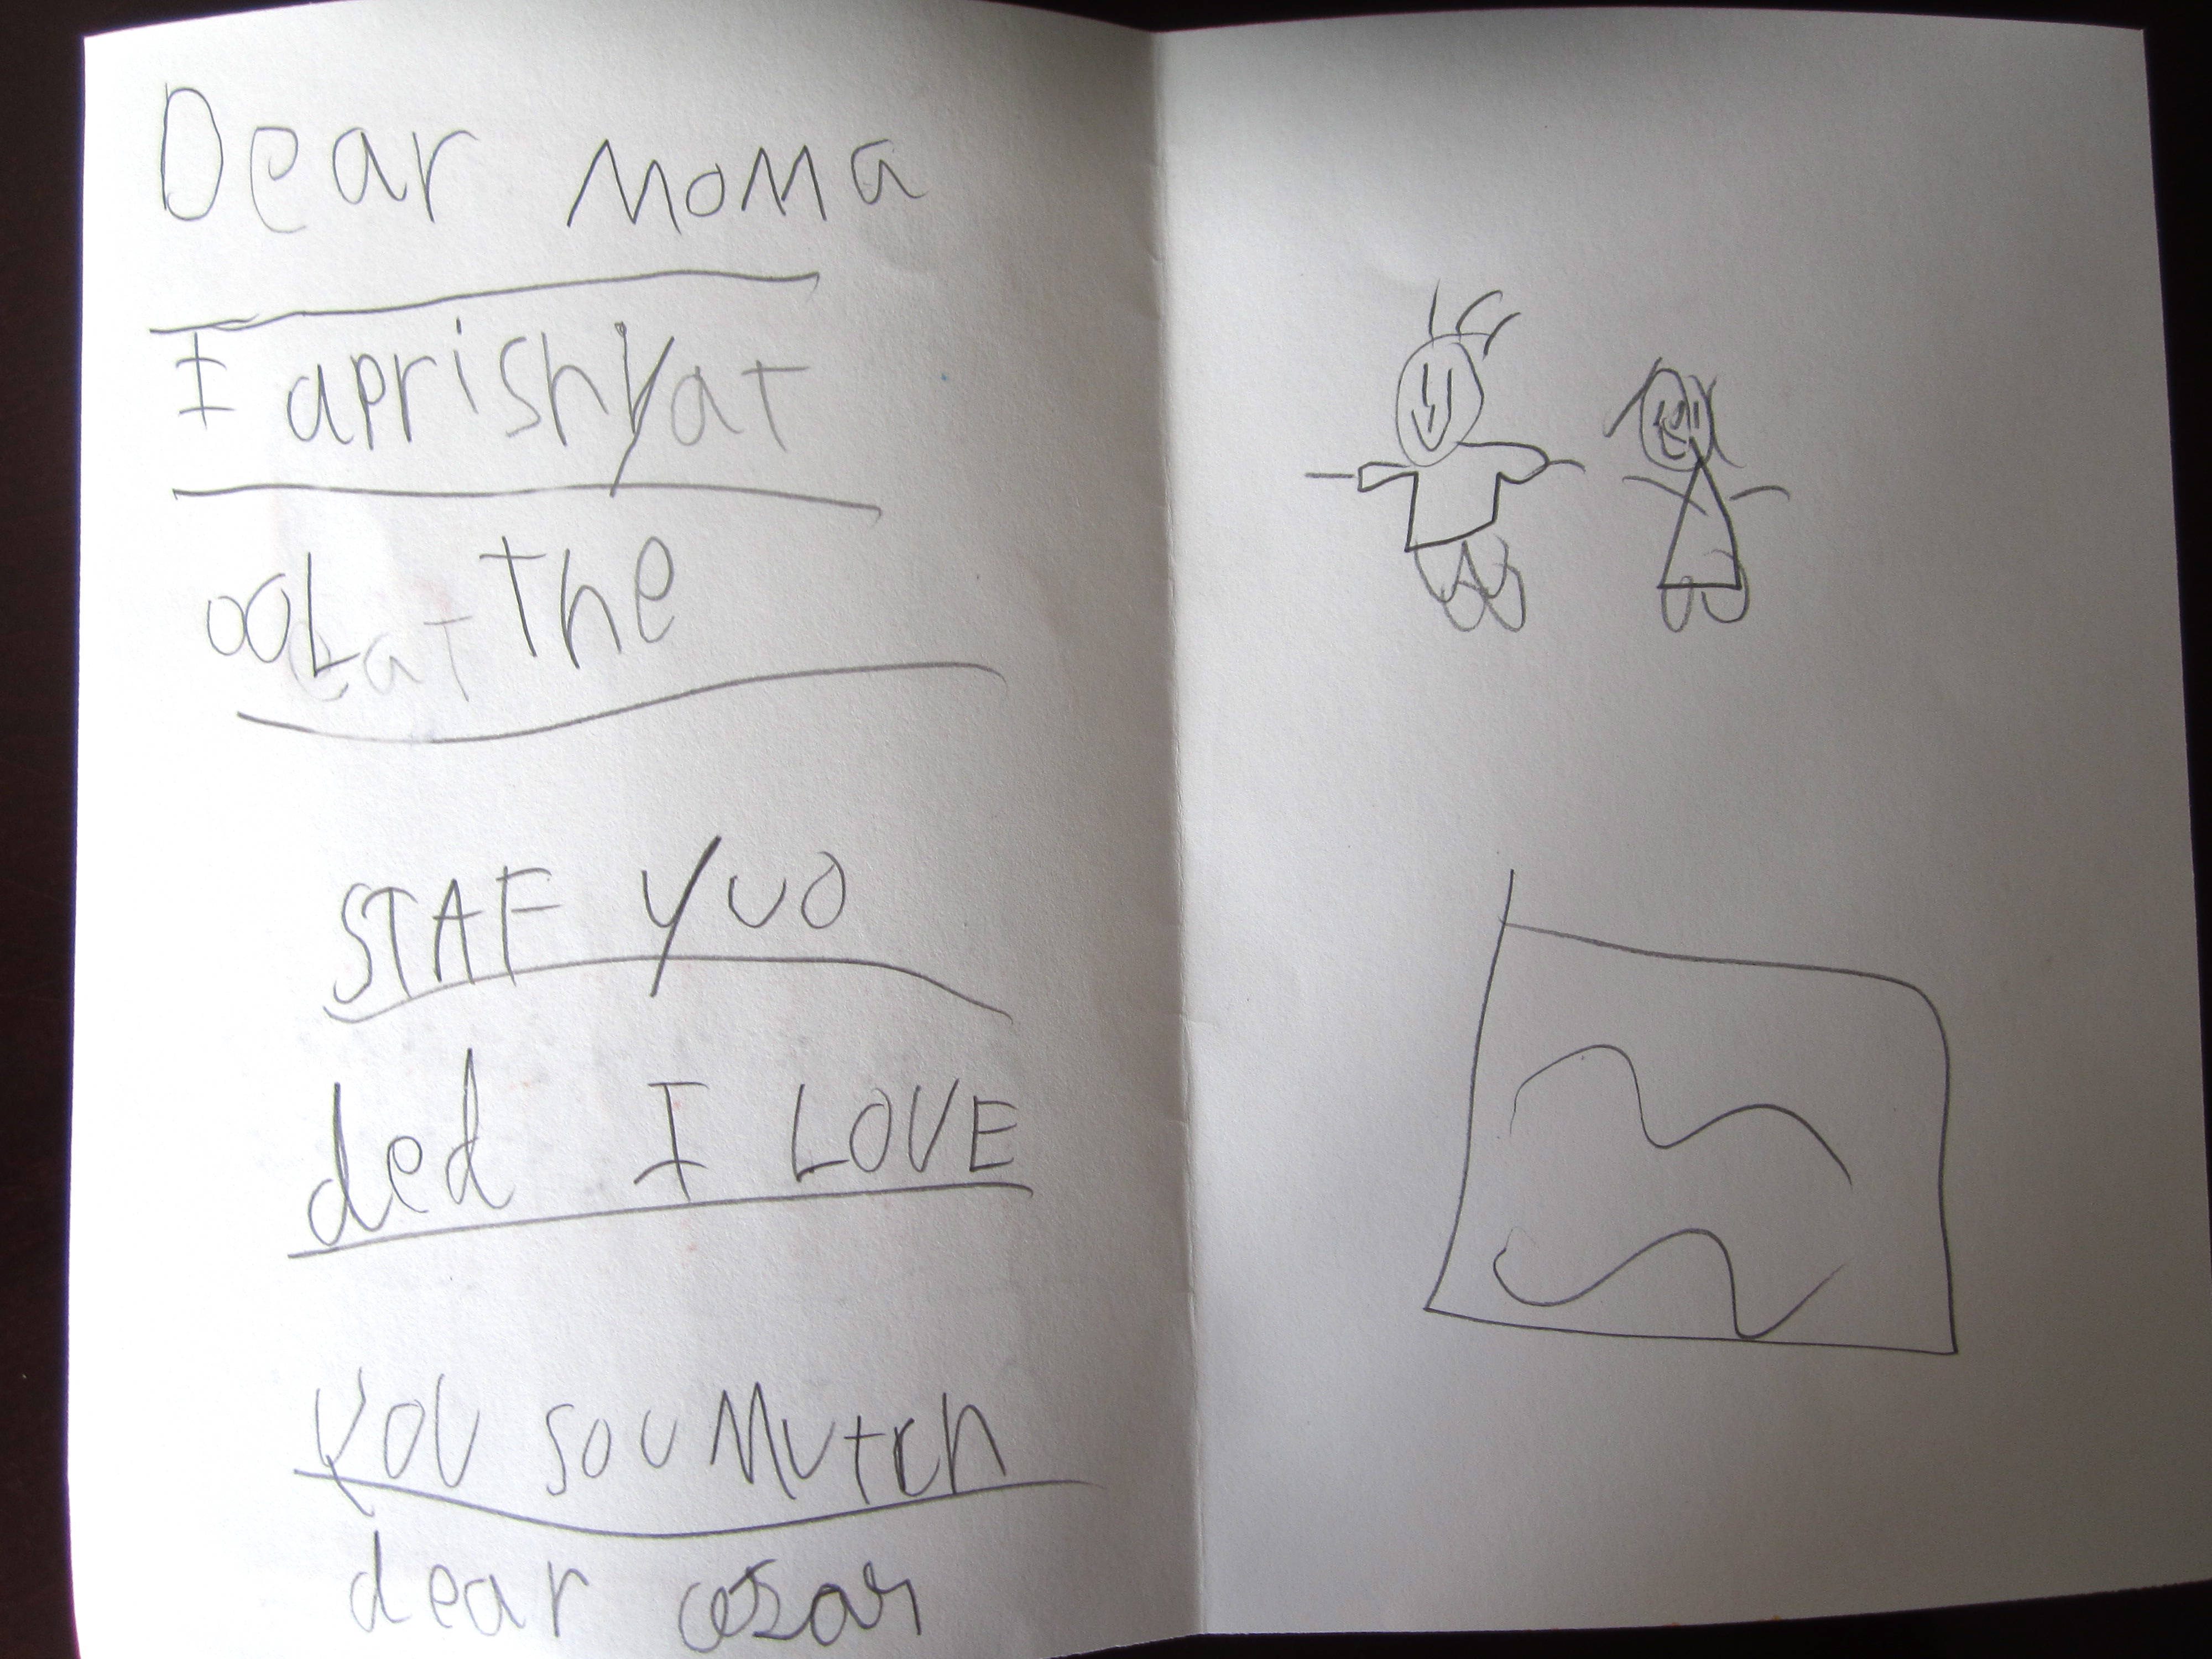 Dear MoMa
I aprishyat
ooL the
STAF yuo
ded I LOVE
YOU sou Mutch
dear cesar